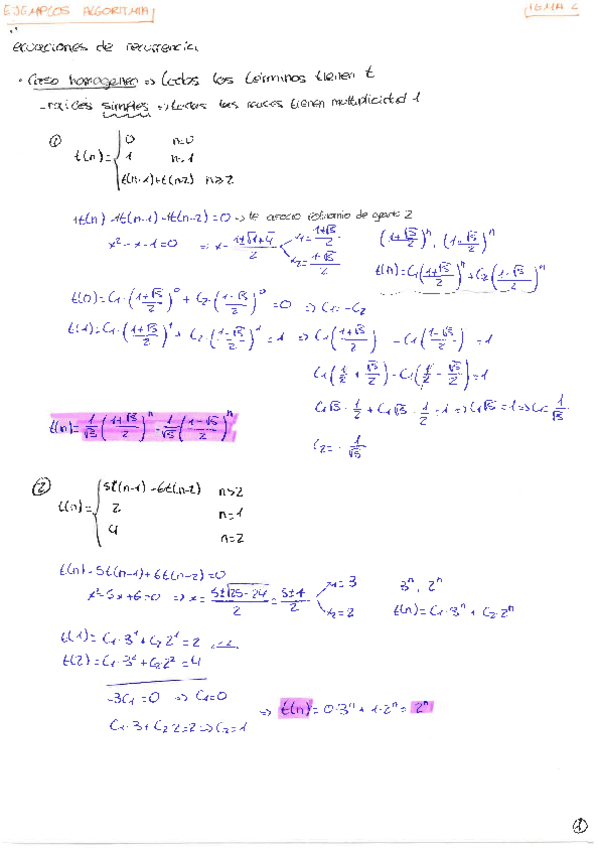 EJEMPLOS ALGORITMIA
TEMA 2
ecuaciones de recurrencia
· Caso homogéneo => todos los términos tienen t
- raíces simples => todas las raíces tienen multiplicidad 1
①
t(n) = { 0 n=0
1 n=1
t(n-1)+t(n-2) n≥2
1t(n) - 1t(n-1) - 1t(n-2) = 0 => te asocio polinomio de grado 2
x² - x - 1 = 0 => x = (1±√(1+4))/2
x₁ = (1+√5)/2
x₂ = (1-√5)/2
((1+√5)/2)ⁿ, ((1-√5)/2)ⁿ
t(n) = C₁((1+√5)/2)ⁿ + C₂((1-√5)/2)ⁿ
t(0) = C₁·((1+√5)/2)⁰ + C₂·((1-√5)/2)⁰ = 0 => C₁ = -C₂
t(1) = C₁·((1+√5)/2)¹ + C₂·((1-√5)/2)¹ = 1 => C₁((1+√5)/2) - C₁((1-√5)/2) = 1
C₁(1/2 + √5/2) - C₁(1/2 - √5/2) = 1
C₁√5·1/2 + C₁√5·1/2 = 1 => C₁√5 = 1 => C₁ = 1/√5
t(n) = 1/√5((1+√5)/2)ⁿ - 1/√5((1-√5)/2)ⁿ
C₂ = -1/√5
②
t(n) = { 5t(n-1) - 6t(n-2) n>2
2 n=1
4 n=2
t(n) - 5t(n-1) + 6t(n-2) = 0
x² - 5x + 6 = 0 => x = (5±√(25-24))/2 = (5±1)/2
x₁ = 3
x₂ = 2
3ⁿ, 2ⁿ
t(n) = C₁·3ⁿ + C₂·2ⁿ
t(1) = C₁·3¹ + C₂·2¹ = 2
t(2) = C₁·3² + C₂·2² = 4
-3C₁ = 0 => C₁ = 0
C₁·3 + C₂·2 = 2 => C₂ = 1
=> t(n) = 0·3ⁿ + 1·2ⁿ = 2ⁿ
①